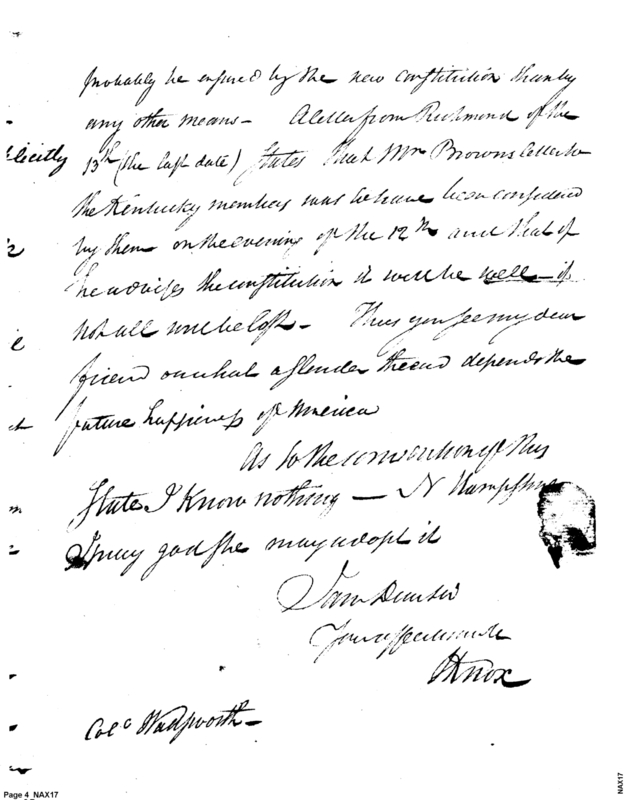 probably be ensured by the new constitution than by
any other means – A letter from Richmond of the
13th (the last date) states that Mr Browns letter to
the Kentucky members was to have been considered
by them on the evening of the 12th and that if
he advises the constitution it will be well – if
not all will be lost – Thus you see my dear
friend on what a slender thread depends the
future happiness of America
As to the convention of this
State I know nothing — N Hampshire
I pray god she may adopt it
I am Dear sir
Your affectionate
HKnox
Colo Wadsworth –
plicitly
Page 4_NAX17
NAX17